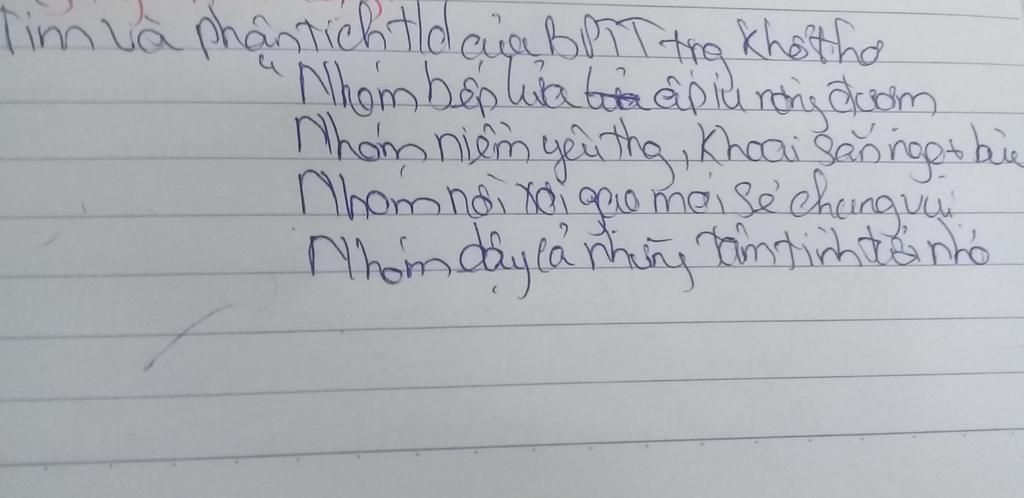 Tìm và phân tích td của BPTT trg khổ thơ
"Nhóm bếp lửa ấp iu nồng đượm
Nhóm niềm yêu thg, khoai sắn ngọt bùi
Nhóm nồi xôi gạo mới sẻ chung vui
Nhóm dậy cả những tâm tình tuổi nhỏ